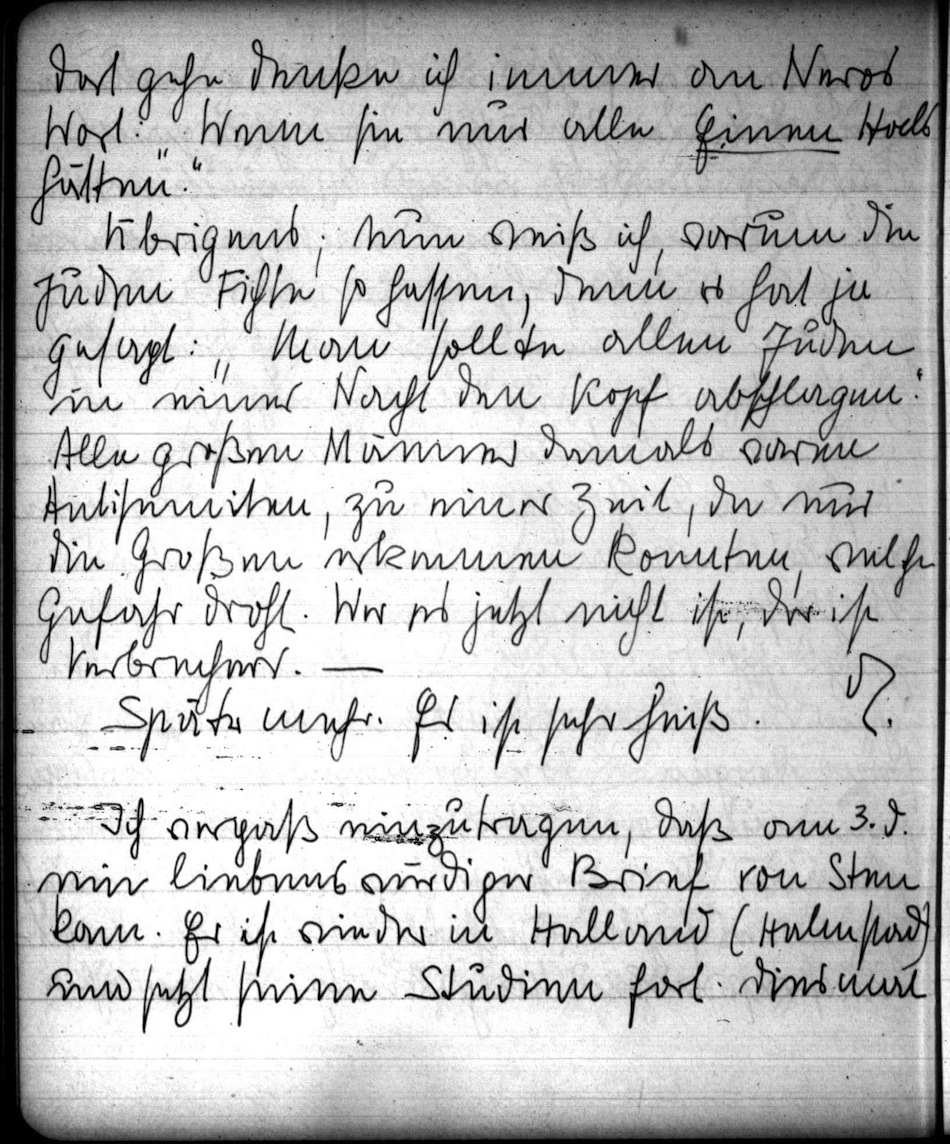 dort gehe denke ich immer an Neros
Wort: „Wenn sie nur alle Einen Hals
hätten."
Übrigens, nun weiß ich, warum die
Juden Fichte so hassen, denn er hat ja
gesagt: „Man sollte allen Juden
in einer Nacht den Kopf abschlagen"
Alle großen Männer damals waren
Antisemiten, zu einer Zeit, da nur
die Großen erkennen konnten, welche
Gefahr droht. Wer es jetzt nicht ist, der ist
Verbrecher. —
Später mehr. Er ist sehr heiß.
Ich vergaß einzutragen, daß am 3. d.
ein liebenswürdiger Brief von Sten
kam. Er ist wieder in Halland (Halmstad)
und setzt seine Studien fort. Diesmal